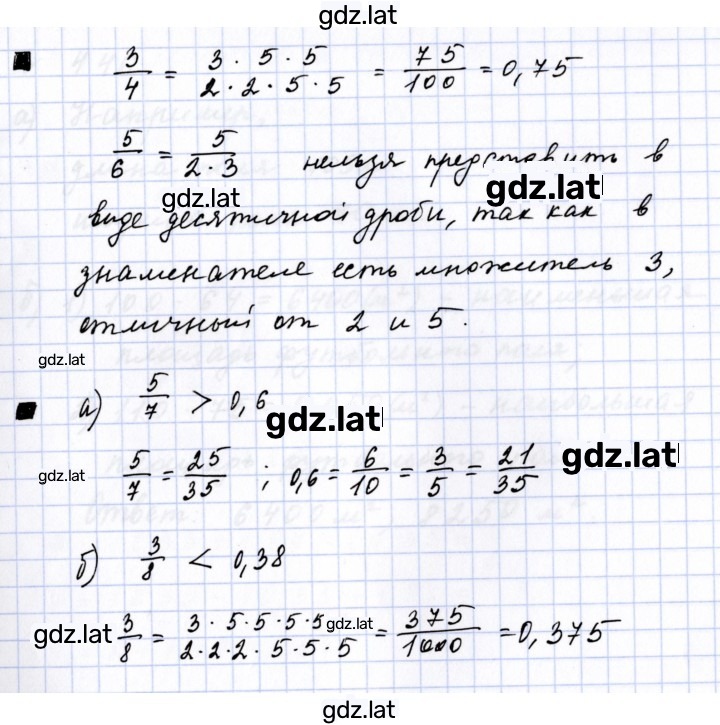 gdz.lat
3/4 = 3 · 5 · 5 / 2 · 2 · 5 · 5 = 75/100 = 0,75
5/6 = 5 / 2 · 3 нельзя представить в
gdz.lat gdz.lat
виде десятичной дроби, так как в
знаменателе есть множитель 3,
отличный от 2 и 5.
gdz.lat
а) 5/7 > 0,6
gdz.lat
gdz.lat 5/7 = 25/35 ; 0,6 = 6/10 = 3/5 = 21/35 gdz.lat
б) 3/8 < 0,38
gdz.lat 3/8 = 3 · 5 · 5 · 5 / 2 · 2 · 2 · 5 · 5 · 5 gdz.lat = 375/1000 = 0,375
gdz.lat